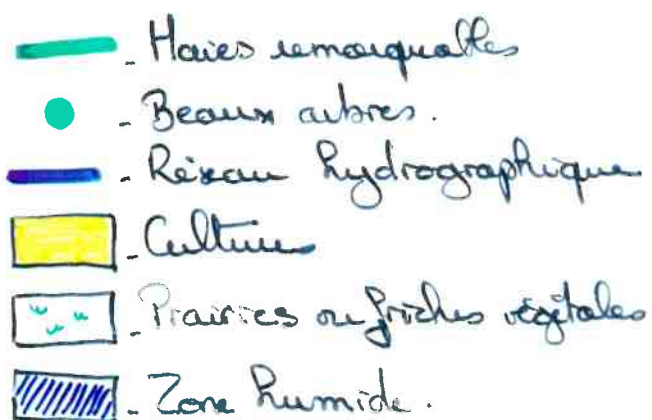 - Haies remarquables
- Beaux arbres.
- Réseau hydrographique
- Cultures
- Prairies ou friches végétales
- Zone humide.